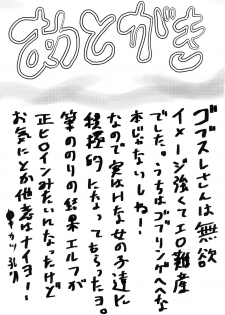 あとがき
ゴブスレさんは無欲
イメージ強くてエロ難産
でした。うちはゴブリンゲヘヘな
本じゃないしね!
なので実はHな女の子達に
積極的になってもらったヨ。
筆ののりの結果エルフが
正ヒロインみたいんなったけど
お気にとか他意はナイヨー!